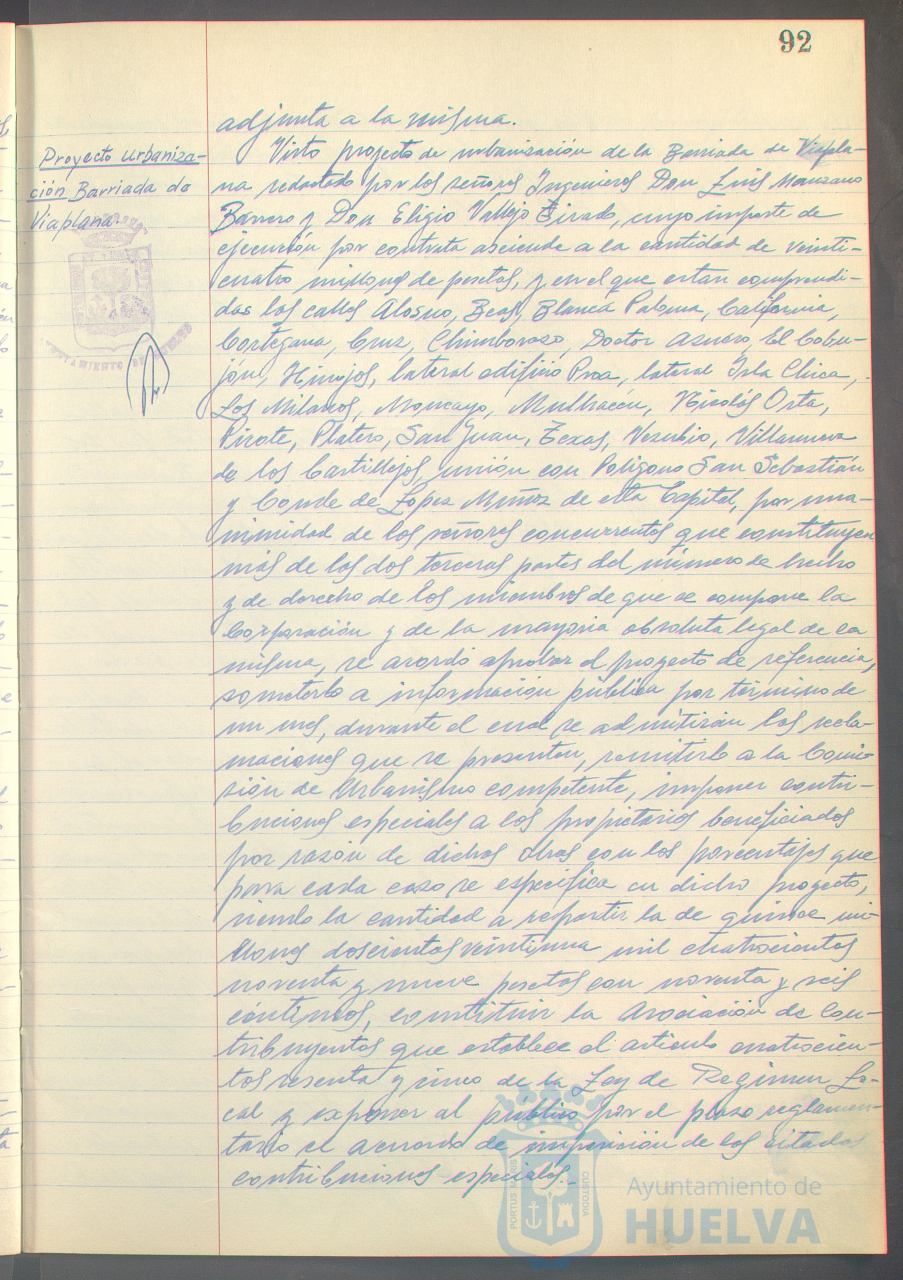 92
adjunta a la misma.
Proyecto Urbaniza-
ción Barriada de
Viaplana
Visto proyecto de urbanización de la Barriada de Viapla-
na redactado por los señores Ingenieros Don Luis Manzano
Barrero y Don Eligio Vallejo Tirado, cuyo importe de
ejecución por contrata asciende a la cantidad de veinti-
cuatro millones de pesetas, y en el que estan comprendi-
das las calles Alosno, Beas, Blanca Paloma, California,
Cortegana, Cruz, Chimborazo, Doctor Azuero, El Cobu-
jón, Hinojos, lateral edificio Proa, lateral Isla Chica,
Los Milanos, Moncayo, Mulhacén, Nicolás Orta,
Pirote, Platero, San Juan, Texas, Vesubio, Villanueva
de los Castillejos, unión con Polígono San Sebastián
y Conde de López Muñoz de esta Capital, por una-
nimidad de los señores concurrentes que constituyen
más de las dos terceras partes del número de hecho
y de derecho de los miembros de que se compone la
Corporación y de la mayoria absoluta legal de la
misma, se acordó aprobar el proyecto de referencia,
someterlo a información pública por término de
un mes, durante el cual se admitirán las recla-
maciones que se presenten, remitirlo a la Comi-
sión de Urbanismo competente, imponer contri-
buciones especiales a los propietarios beneficiados
por razón de dichas obras con los porcentajes que
para cada caso se especifica en dicho proyecto,
siendo la cantidad a repartir la de quince mi-
llones doscientas veintiuna mil cuatrocientas
noventa y nueve pesetas con noventa y seis
céntimos, constituir la Asociación de Con-
tribuyentes que establece el artículo cuatrocien-
tos sesenta y cinco de la Ley de Regimen Lo-
cal y exponer al público por el plazo reglamen-
tario el acuerdo de imposición de las citadas
contribuciones especiales.-
PORTUS MARIS
CUSTODIA
Ayuntamiento de
HUELVA